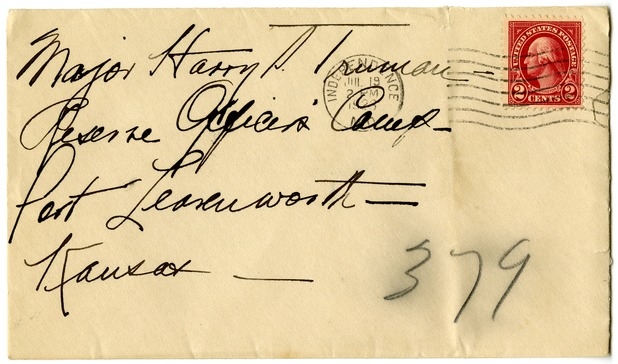 Major Harry S. Truman
Reserve Officers Camp
Fort Leavenworth
Kansas
379
INDEPENDENCE
JUL 19
UNITED STATES POSTAGE
2 CENTS 2